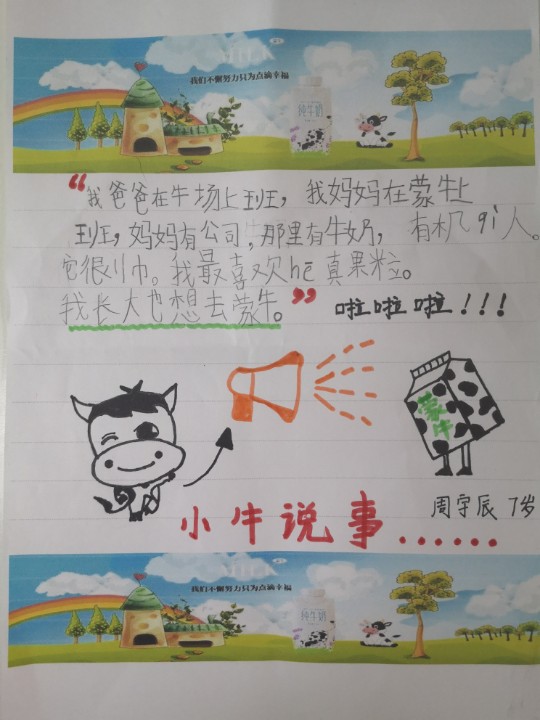 我们不懈努力只为点滴幸福
纯牛奶
“我爸爸在牛场上班，我妈妈在蒙牛上
班，妈妈有公司，那里有牛奶，有机qì人。
它很川巾。我最喜欢hē真果粒。
我长大也想去蒙牛。”啦啦啦！！！
蒙牛
周宇辰 7岁
小牛说事......
我们不懈努力只为点滴幸福
纯牛奶